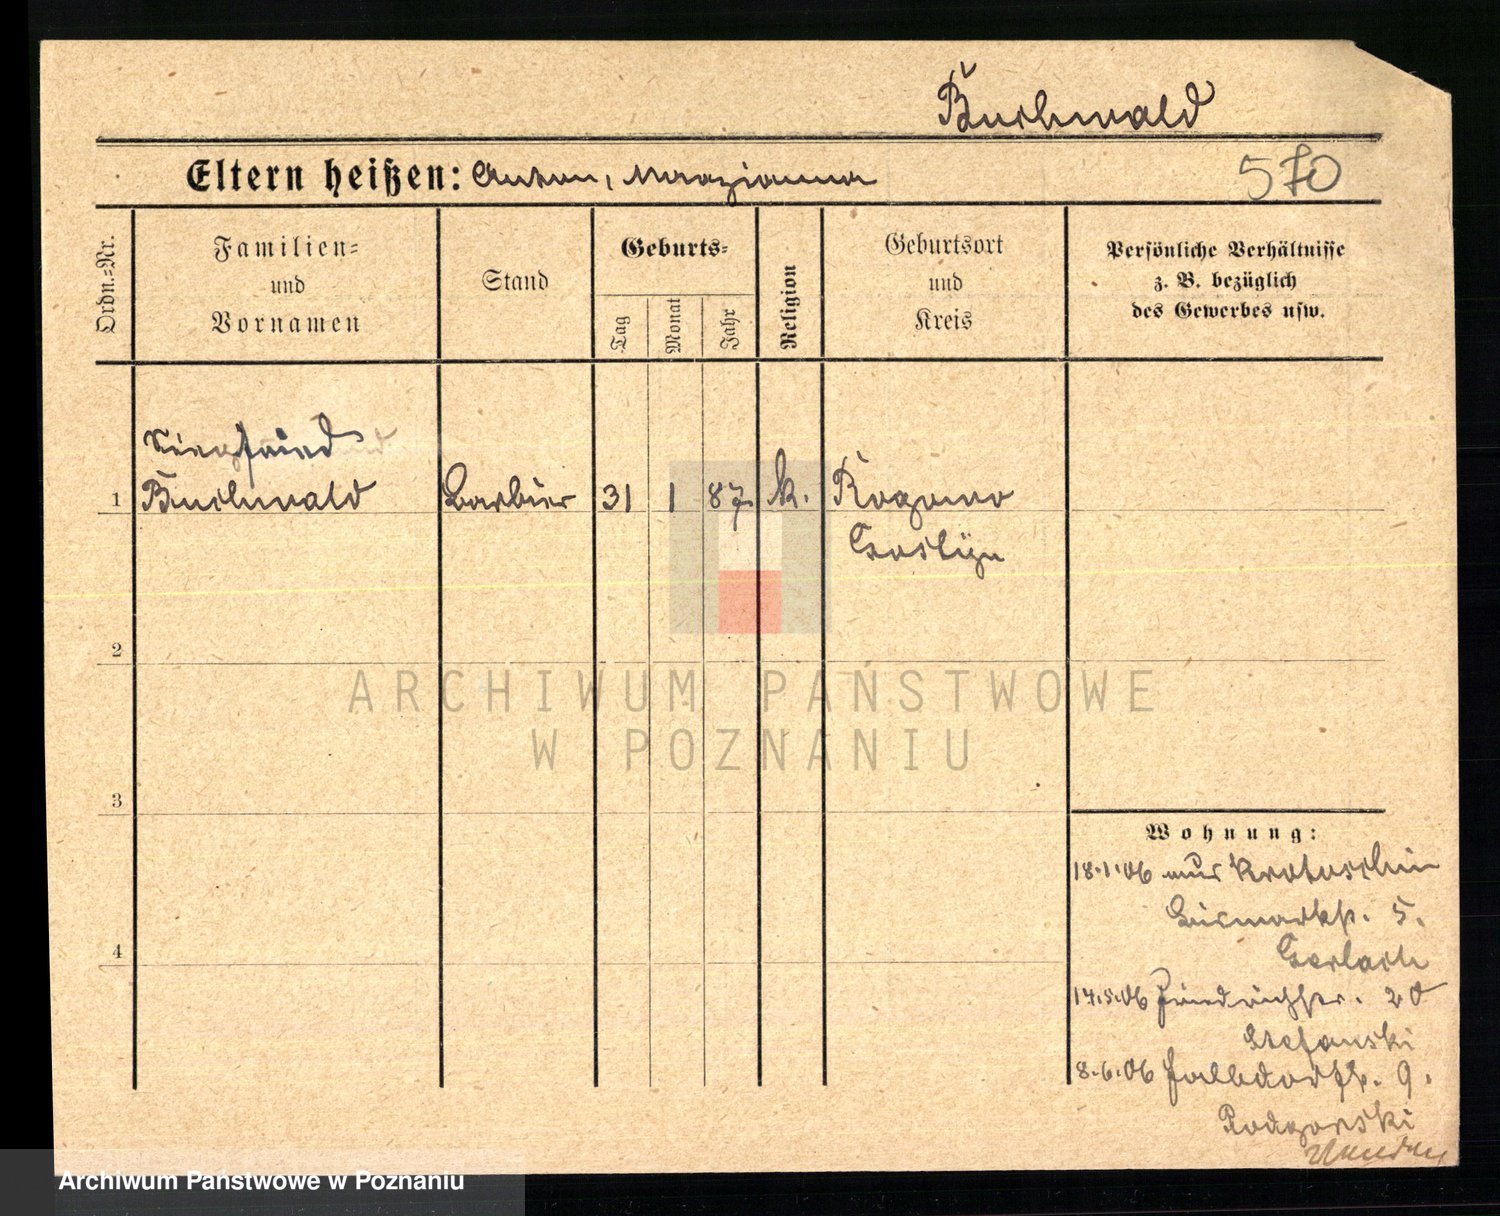 Buchwald
Eltern heißen: Anton, Marzianna
570
Ordn.=Nr.
Familien=
und
Vornamen
Stand
Geburts=
Tag
Monat
Jahr
Religion
Geburtsort
und
Kreis
Persönliche Verhältnisse
z. B. bezüglich
des Gewerbes usw.
Siegfried
1 Buchwald Barbier 31 1 87. k. Rogowo
Gostÿn
2
3
4
Wohnung:
18.1.06 aus Krotoschin
Bismarkstr. 5.
Gerlach
14.5.06 Friedrichstr. 20
Stefanski
8.6.06 Halbdorfstr. 9.
Podgorski
ARCHIWUM PAŃSTWOWE
W POZNANIU
Archiwum Państwowe w Poznaniu